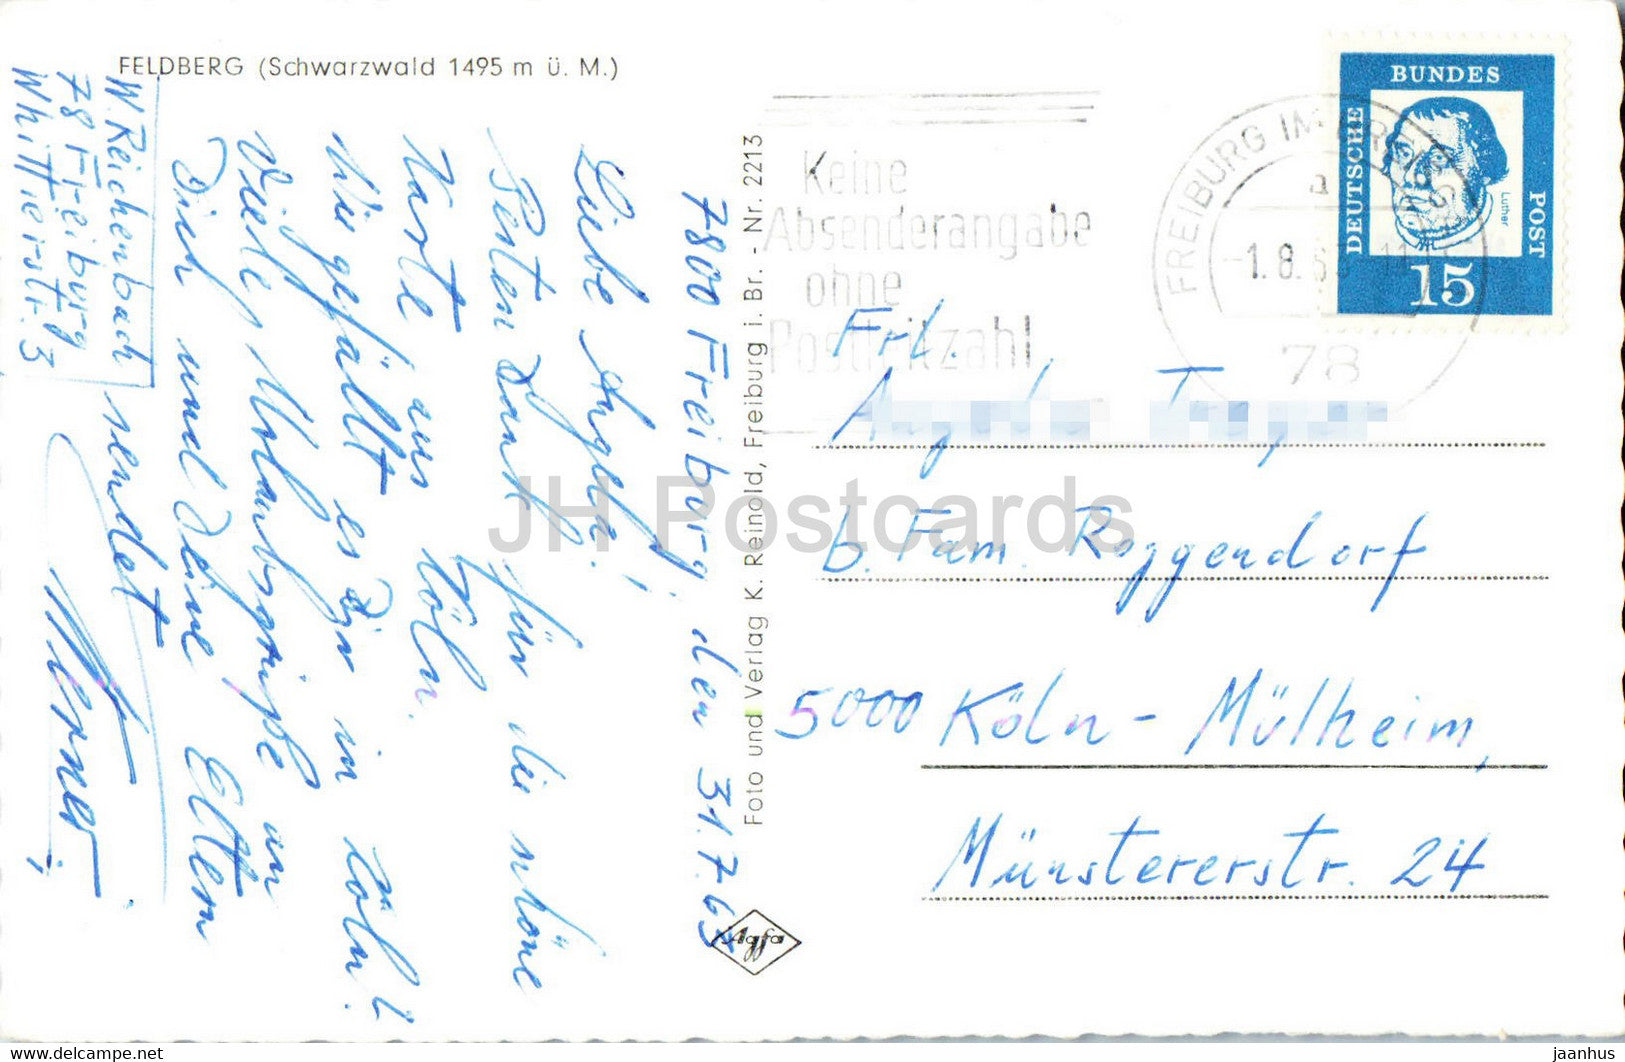 FELDBERG (Schwarzwald 1495 m ü. M.)
7800 Freiburg, den 31.7.63
Liebe Angela!
Besten Dank für die schöne
Karte aus Köln.
Wie gefällt es Dir in Köln?
Viele Urlaubsgrüße an
Dich und Deine Eltern
sendet
Werner
W. Reichenbach
78 Freiburg
Whittierstr. 3
Foto und Verlag K. Reinold, Freiburg i. Br. - Nr. 2213
Agfa
Keine
Absenderangabe
ohne
Postleitzahl
FREIBURG IM BREISGAU
a
-1.8.63-11
78
DEUTSCHE
BUNDES
POST
Luther
15
Frl.
b. Fam. Roggendorf
5000 Köln-Mülheim,
Münstererstr. 24
JH Postcards
https://www.delcampe.net
jaanhus